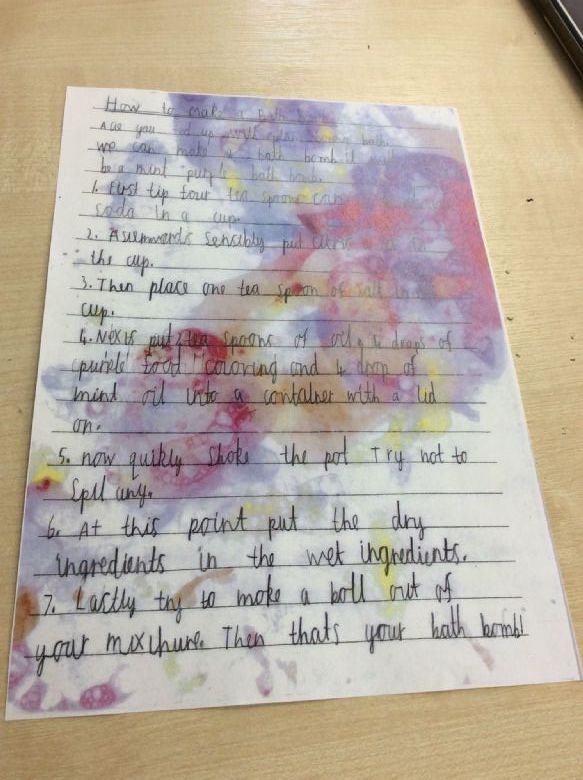 How to make a Bath
Are you ed up with your bath
we can make a bath bomb it will
be a mint purple bath bomb.
1. First tip four tea spoons
soda in a cup.
2. Aswerwards sensibly put citric to
the cup.
3. Then place one tea spoon of salt in
cup.
4. Nexts put 2 tea spoons of oil, 4 drops of
purple food coloring and 4 drop of
mint oil into a container with a lid
on.
5. now quikly shake the pot Try not to
Spll any.
6. At this point put the dry
ingredients in the wet ingredients.
7. Lastly try to make a ball out of
your mixchure. Then thats your bath bomb!